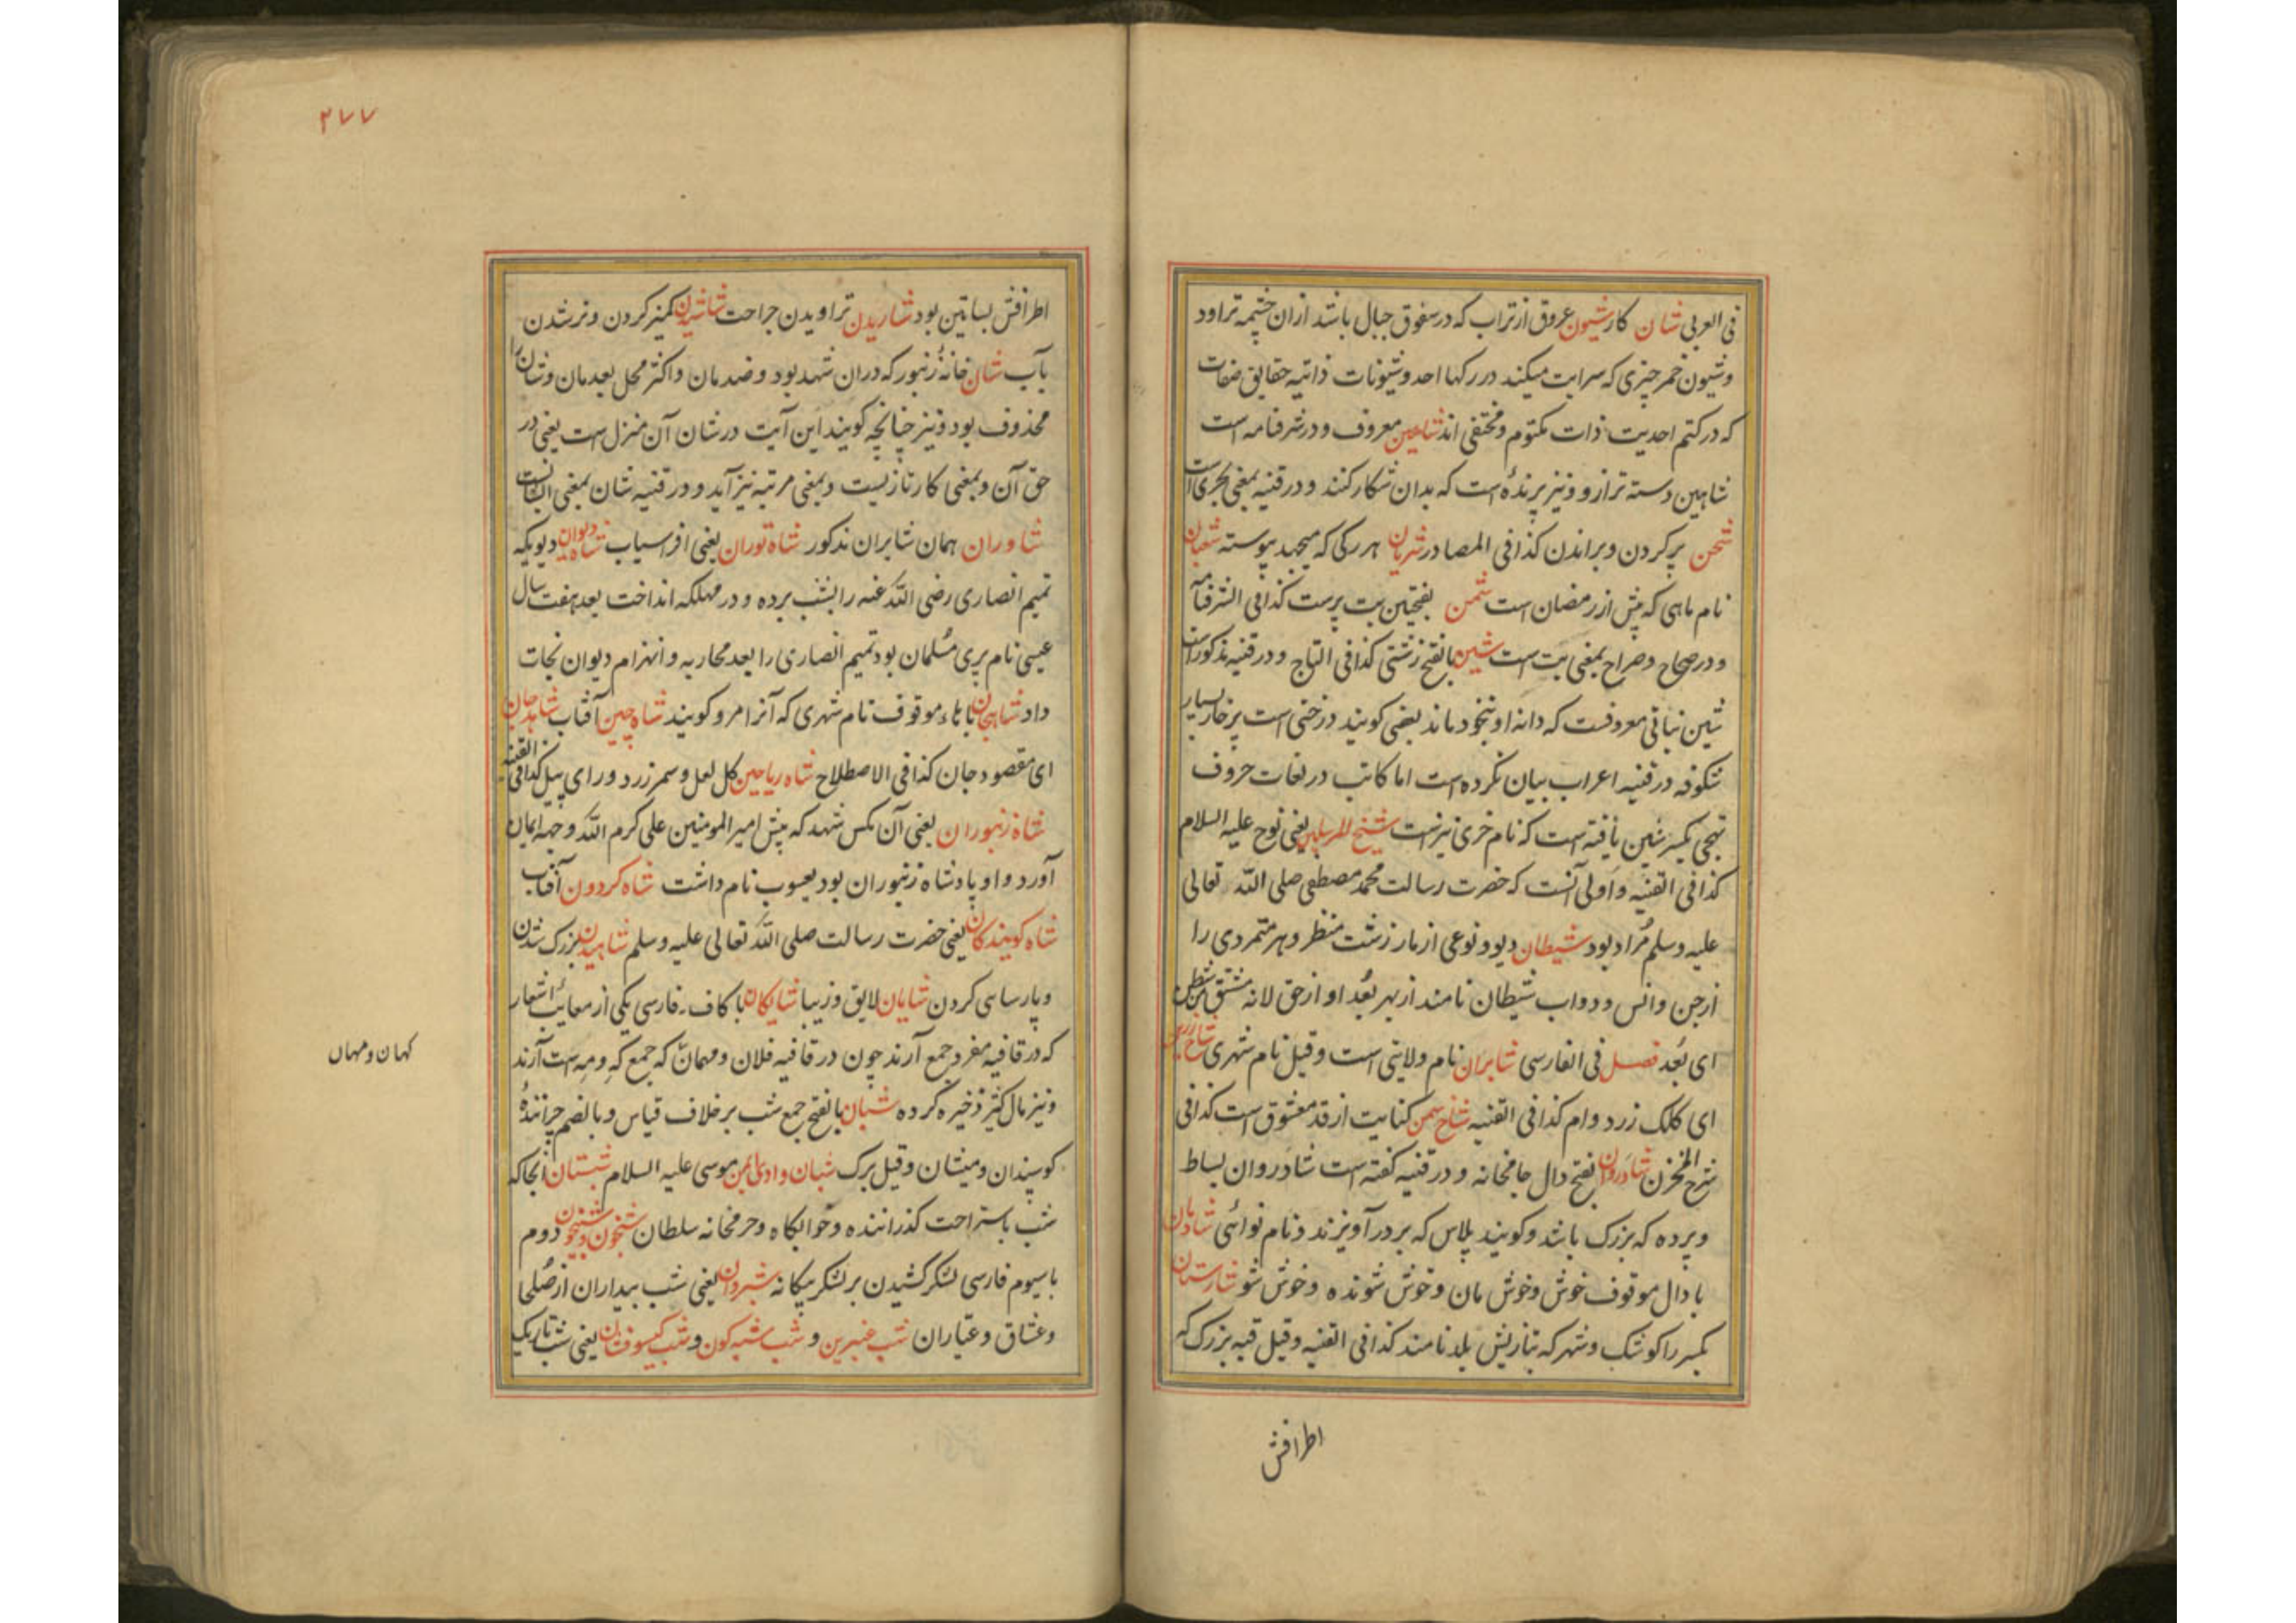 فی العربی شان کار شیون عروق از تراب که در سفوق جبال باشد ازان چشمه تراود
وشیون خمر چیزی که سرایت میکند در رکها احد وشیونات ذاتیه حقایق صفات
که در کتم احدیت ذات مکتوم ومختفی اند شاهین معروف و در شرفنامه است
شاهین دسته ترازو ونیز پرنده است که بدان شکار کنند و در قنیه بمعنی بحری است
شحن پر کردن وبراندن کذا فی المصادر شریان هر رکی که میجهد پیوسته شعبان
نام ماهی که پیش از رمضان است شمن بفتحتین بت پرست کذا فی الشرفنامه
و در صحاح وصراح بمعنی بت است شین بالفتح زشتی کذا فی التاج و در قنیه مذکور است
شین نباتی معروفست که دانه او بنخود ماند بعضی کویند درختی است پر خار بسیار
شکوفه در قنیه اعراب بیان نکرده است اما کاتب در لغات حروف
تهجی بکسر شین یافته است که نام خری نیز است شیخ المرسلین یعنی نوح علیه السلام
کذا فی القنیه واولی آنست که حضرت رسالت محمد مصطفی صلی الله تعالی
علیه وسلم مراد بود شیطان دیو ونوعی از مار زشت منظر وهر متمردی را
از جن وانس ودواب شیطان نامند از بهر بعد او از حق لانه مشتق من شطن
ای بعد فصل فی الفارسی شابران نام ولایتی است وقیل نام شهری شاخ زرین
ای کلک زرد وام کذا فی القنیه شاخ سمن کنایت از قد معشوق است کذا فی
شرح المخزن شادروان بفتح دال جامخانه و در قنیه کفته است شادروان بساط
وپرده که بزرک باشد وکویند پلاس که بر در آویزند ونام نوائی شادمان
با دال موقوف خوش وخوش مان وخوش شونده وخوش شو شارستان
بکسر را کوشک وشهر که بتازیش بلد نامند کذا فی القنیه وقیل قبه بزرک که
اطرافش
۲۷۷
اطرافش بساتین بود شاریدن تراویدن جراحت شاشیدن کمیز کردن وتر شدن
بآب شان خانه زنبور که دران شهد بود وضد مان واکثر محل بعد مان وشان را
محذوف بود ونیز چنانچه کویند این آیت در شان آن منزل است یعنی در
حق آن وبمعنی کار تازیست وبمعنی مرتبه نیز آید و در قنیه شان بمعنی ایشانست
شاوران همان شابران مذکور شاه توران یعنی افراسیاب شاه دیوان دیویکه
تمیم انصاری رضی الله عنه را بشب برده و در مهلکه انداخت بعد هفت سال
عیسی نام پری مسلمان بود تمیم انصاری را بعد محاربه وانهزام دیوان نجات
داد شاهجان با هاء موقوف نام شهری که آنرا مرو کویند شاه چین آفتاب شاهد جان
ای مقصود جان کذا فی الاصطلاح شاه ریاحین کل لعل وسمر زرد ورای بیل کذا فی القنیه
شاه زنبوران یعنی آن مکس شهد که پیش امیر المومنین علی کرم الله وجهه ایمان
آورد واو پادشاه زنبوران بود یعسوب نام داشت شاه کردون آفتاب
شاه کویندکان یعنی حضرت رسالت صلی الله تعالی علیه وسلم شاهیدن بزرک شدن
وپارسایی کردن شایان لایق وزیبا شایکان با کاف فارسی یکی از معایب اشعار
که در قافیه مفرد جمع آرند چون در قافیه فلان ومهمان که جمع که ومه است آرند
کهان ومهان
ونیز مال کثیر ذخیره کرده شبان بالفتح جمع شب بر خلاف قیاس وبالضم چراننده
کوسپندان ومیشان وقیل برک شبان وادی ایمن موسی علیه السلام شبستان آنجا که
شب باستراحت کذرانند وخوابکاه وحرمخانه سلطان شبخون وشبیخون دوم
با سیوم فارسی لشکر کشیدن بر لشکر بیکانه شبروان یعنی شب بیداران از صلحا
وعشاق وعیاران شب عنبرین وشب شبه کون وشب کیسو فشان یعنی شب تاریک